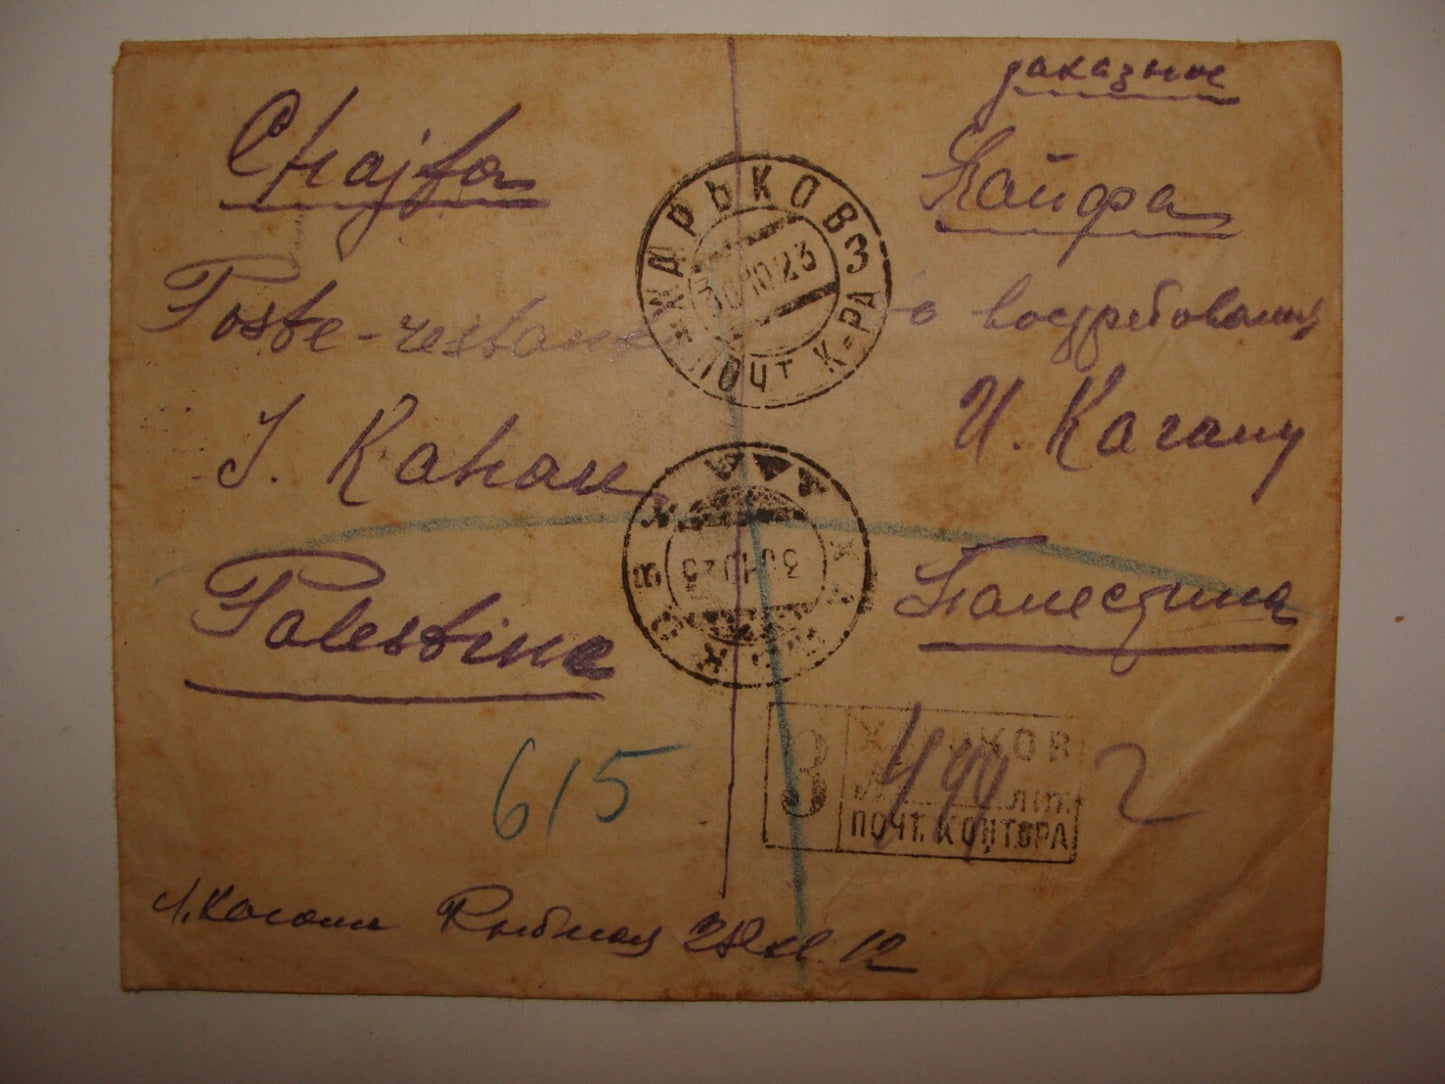 заказное
Chajfa
Хайфа
Poste-restante
до востребования
J. Kahan
И. Кагану
Palestine
Палестина
ХАРЬКОВ 3
30 10 23
ПОЧТ К-РА
ХАРЬКОВ
30 10 23
615
3
ХАРЬКОВ
ПОЧТ. КОНТОРА
2
Каган Рыбная
12